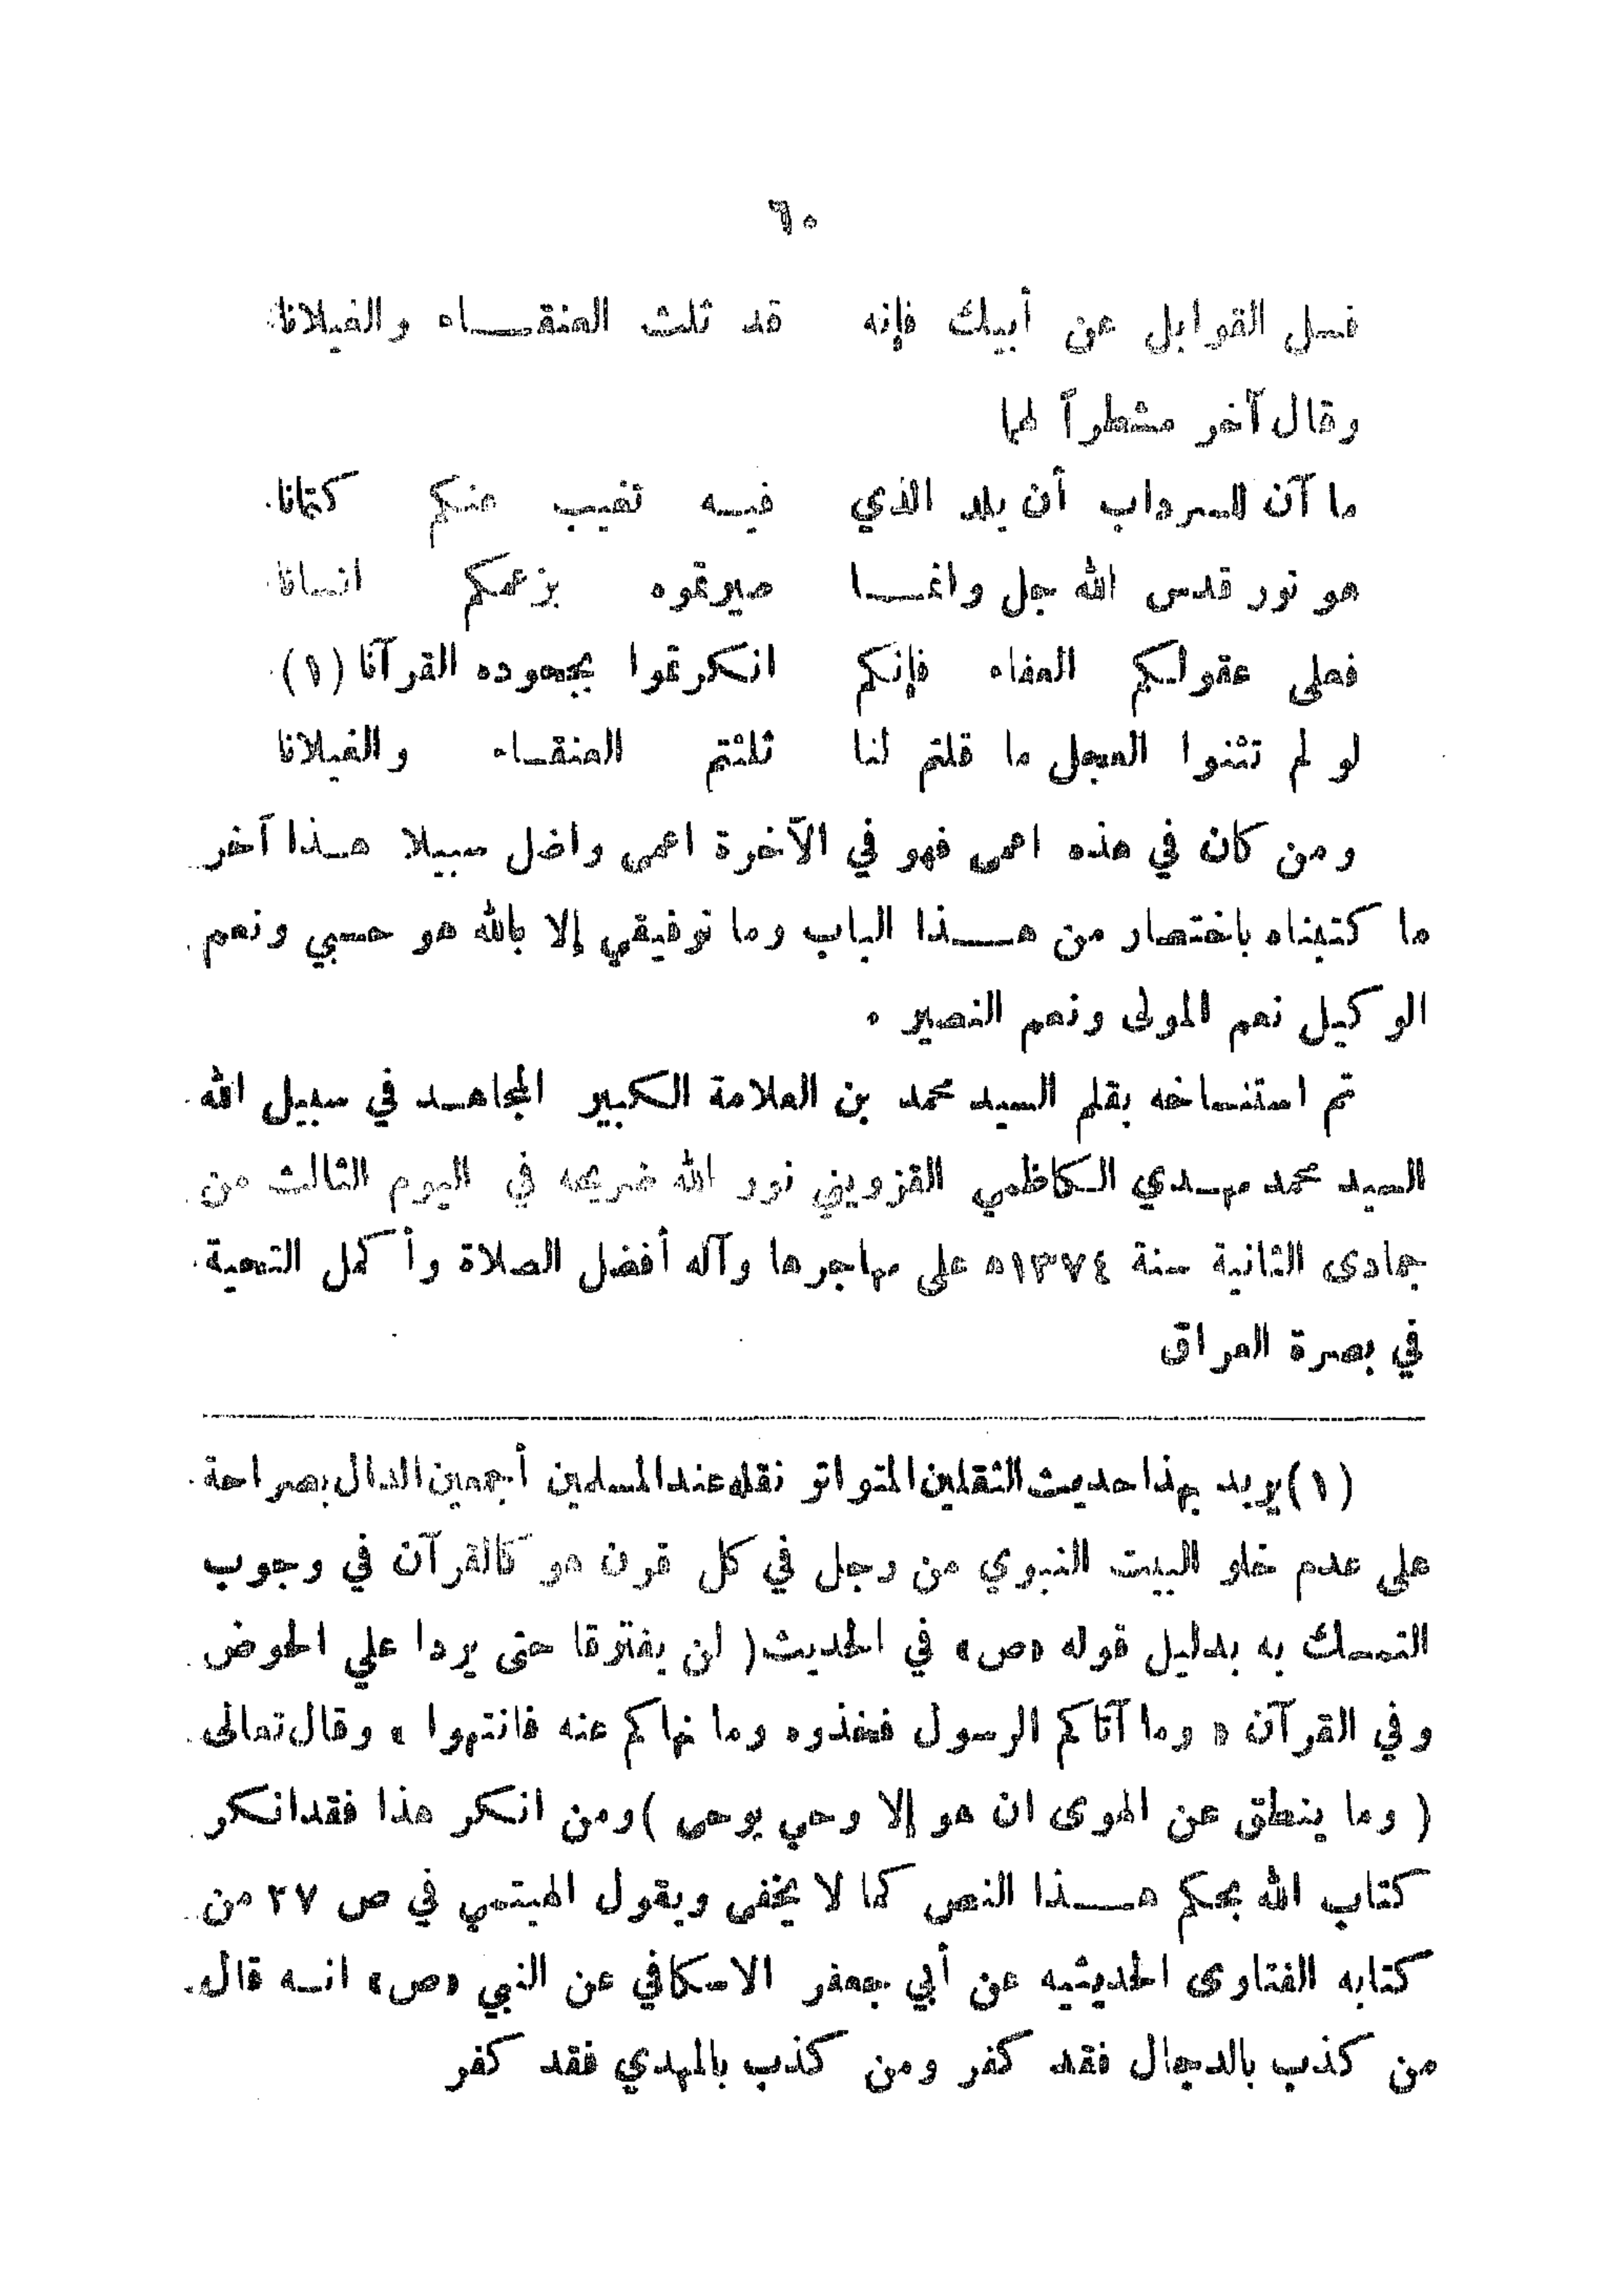 ٦٠
فسل القوابل عن أبيك فإنه قد ثلث العنقـــاه والغيلانا
وقال آخر مشطراً لهما
ما آن للسرداب أن يلد الذي فيـه تغيب عنكم كتمانا
هو نور قدس الله جل وانمـــا صيرتموه بزعمكم انسانا
فعلى عقولكم العفاه فإنكم انكرتموا بجحوده القرآنا (١)
لو لم تثنوا العجل ما قلتم لنا ثلثتم العنقـاه والغيلانا
ومن كان في هذه اعمى فهو في الآخرة اعمى واضل سبيلا هـذا آخر
ما كتبناه باختصار من هــذا الباب وما توفيقي إلا بالله هو حسبي ونعم
الوكيل نعم المولى ونعم النصير .
تم استنساخه بقلم السيد محمد بن العلامة الكبير المجاهـد في سبيل الله
السيد محمد مهـدي الكاظمي القزويني نور الله ضريحه في اليوم الثالث من
جمادى الثانية سنة ١٣٧٤ه على مهاجرها وآله أفضل الصلاة وأكمل التحية
في بصرة العراق
(١) يريد بهذا حديث الثقلين المتواتو نقله عند المسلمين أجمعين الدال بصراحة
على عدم خلو البيت النبوي من رجل في كل قرن هو كالقرآن في وجوب
التمسك به بدليل قوله «ص» في الحديث ( لن يفترقا حتى يردا علي الحوض
وفي القرآن « وما آتاكم الرسول فخذوه وما نهاكم عنه فانتهوا » وقال تعالى
( وما ينطق عن الهوى ان هو إلا وحي يوحى ) ومن انكر هذا فقد انكر
كتاب الله بحكم هــذا النص كما لا يخفى ويقول الهيتمي في ص ٢٧ من
كتابه الفتاوى الحديثيه عن أبي جعفر الاسكافي عن النبي «ص» انـه قال
من كذب بالدجال فقد كفر ومن كذب بالمهدي فقد كفر